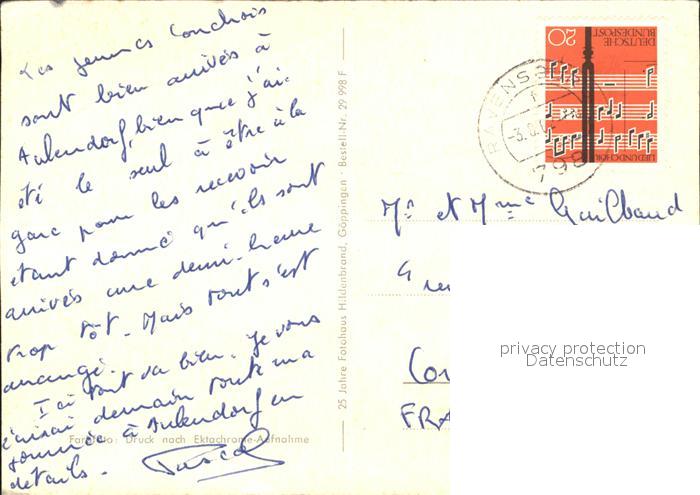 Les jeunes Conchois
sont bien arrivés à
Aulendorf, bien que j'ai
été le seul à être à la
gare pour les recevoir
étant donné qu'ils sont
arrivés une demi-heure
trop tôt. Mais tout s'est
arrangé.
Ici tout va bien. Je vous
écrirai demain toute ma
journée à Aulendorf en
détails. Pascal
Farbfoto: Druck nach Ektachrome-Aufnahme
25 Jahre Fotohaus Hildenbrand, Göppingen · Bestell-Nr. 29 998 F
20
DEUTSCHE
BUNDESPOST
LIED UND CHOR
RAVENSB
f
-3.8.
798
Mr et Mme Guilbaud
9 rue
Con
FRA
privacy protection
Datenschutz